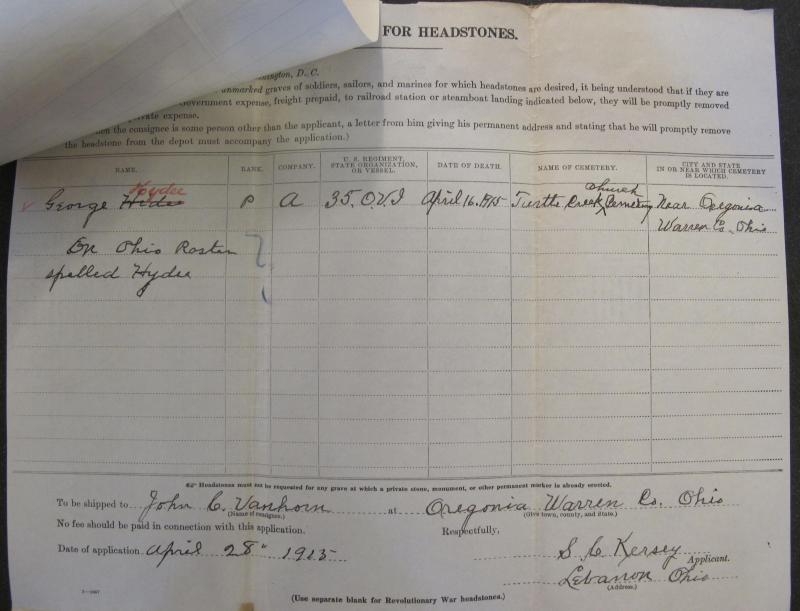 FOR HEADSTONES.
D. C.
unmarked graves of soldiers, sailors, and marines for which headstones are desired, it being understood that if they are
Government expense, freight prepaid, to railroad station or steamboat landing indicated below, they will be promptly removed
expense.
the consignee is some person other than the applicant, a letter from him giving his permanent address and stating that he will promptly remove
the headstone from the depot must accompany the application.)
NAME. RANK. COMPANY. U. S. REGIMENT, STATE ORGANIZATION, OR VESSEL. DATE OF DEATH. NAME OF CEMETERY. CITY AND STATE IN OR NEAR WHICH CEMETERY IS LOCATED.
Hydee church
George P A 35. O.V.I April 16. 1915 Turtle Creek Cemetery Near Oregonia
Warren Co., Ohio
On Ohio Roster
spelled Hydee
Headstones must not be requested for any grave at which a private stone, monument, or other permanent marker is already erected.
To be shipped to John C. Vanhorn at Oregonia Warren Co. Ohio
(Name of consignee.) (Give town, county, and state.)
No fee should be paid in connection with this application. Respectfully,
Date of application April 28" 1915 S. C. Kersey Applicant.
Lebanon Ohio
(Address.)
(Use separate blank for Revolutionary War headstones.)